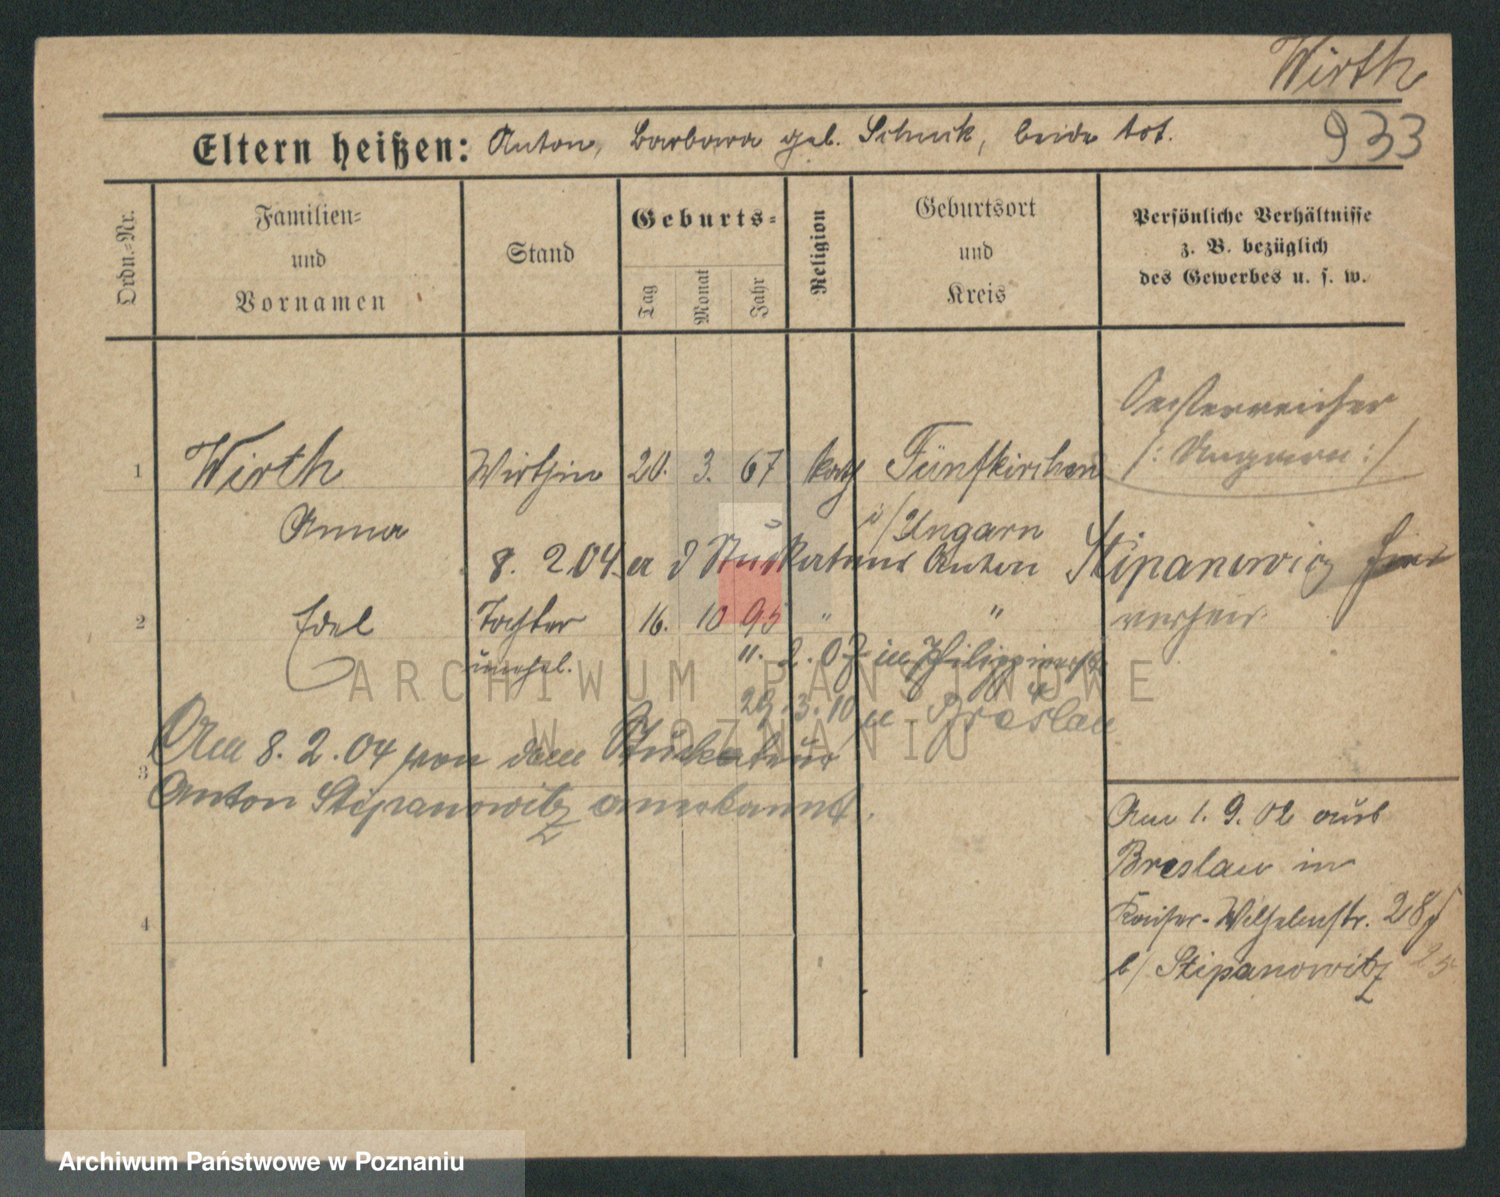 Wirth
933
Eltern heißen: Anton, Barbara geb. Schuck, beide tot.
Ordn.=Nr.
Familien=
und
Vornamen
Stand
Geburts=
Tag
Monat
Jahr
Religion
Geburtsort
und
Kreis
Persönliche Verhältnisse
z. B. bezüglich
des Gewerbes u. s. w.
Oesterreicher
/: Ungarn :/
1 Wirth Wirthin 20. 3. 67 kath Fünfkirchen
Anna i/Ungarn
8. 2 04 Stuckateurs Anton Stipanowicz
verheir.
2 Edel Tochter 16. 10 95 " "
unehel. 11. 2. 07 in
29. 3. 10 Breslau
Am 8. 2. 04 von dem Stuckateur
3
Anton Stipanowitz anerkannt.
Am 1. 9. 02 aus
Breslau in
Kaiser-Wilhelmstr. 28
b/ Stipanowitz 25
4
ARCHIWUM PAŃSTWOWE
W POZNANIU
Archiwum Państwowe w Poznaniu